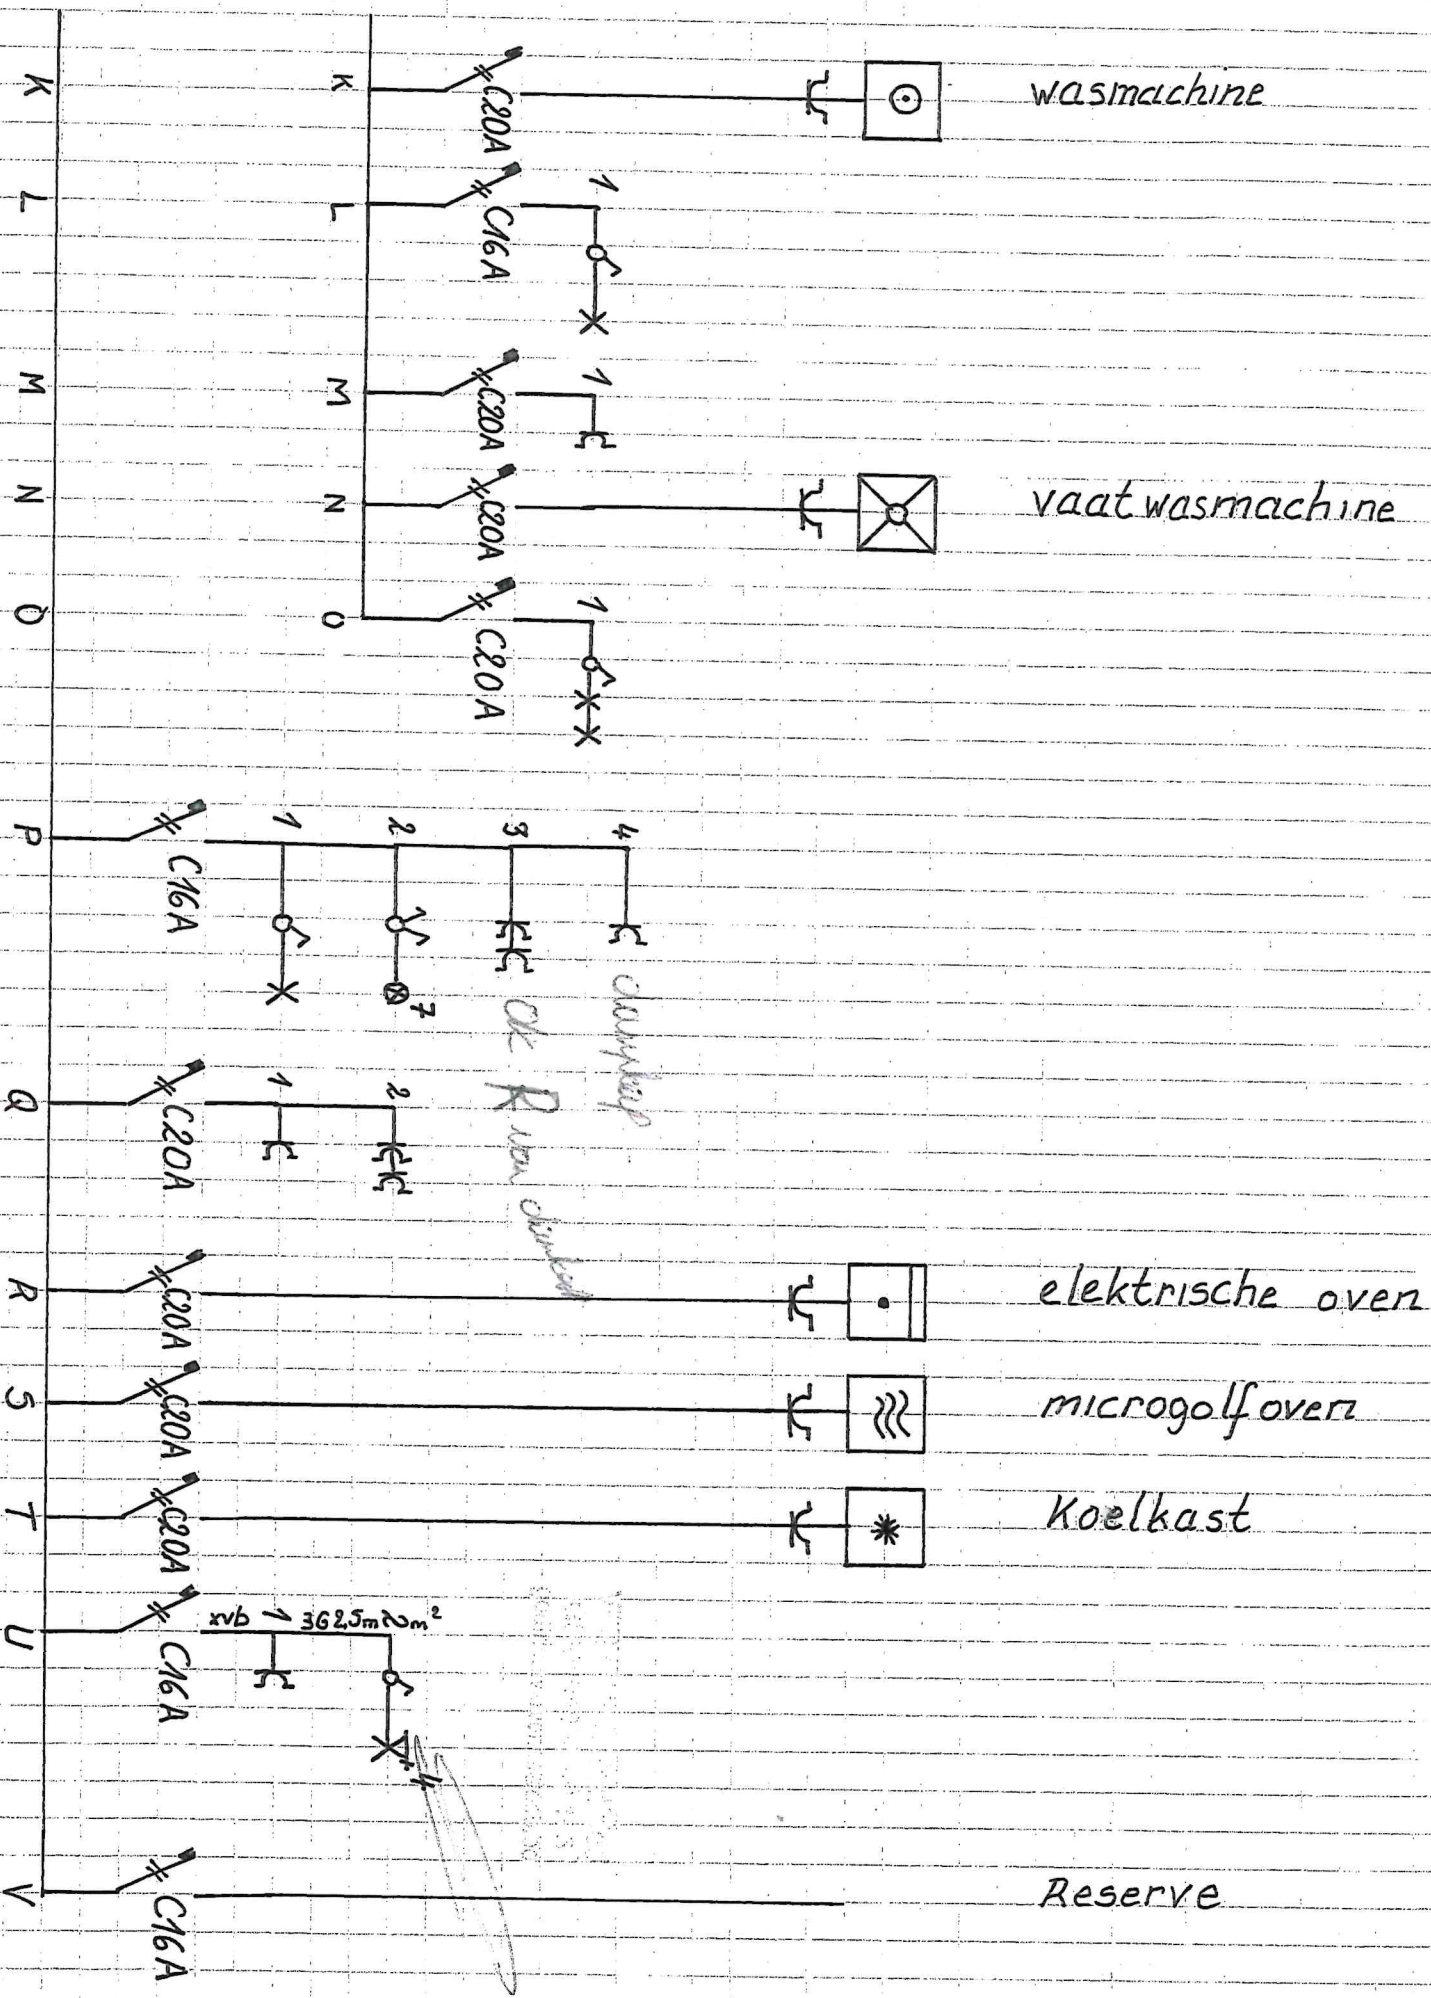 K K C20A wasmachine
L L C16A 1
M M C20A 1
N N C20A vaatwasmachine
O O C20A 1
P C16A 1 2 3 4
7
damp
ok R van
Q C20A 1 2
R C20A elektrische oven
S C20A microgolfoven
T C20A Koelkast
U C16A xvb 1 3G2,5mm²
4
V C16A Reserve